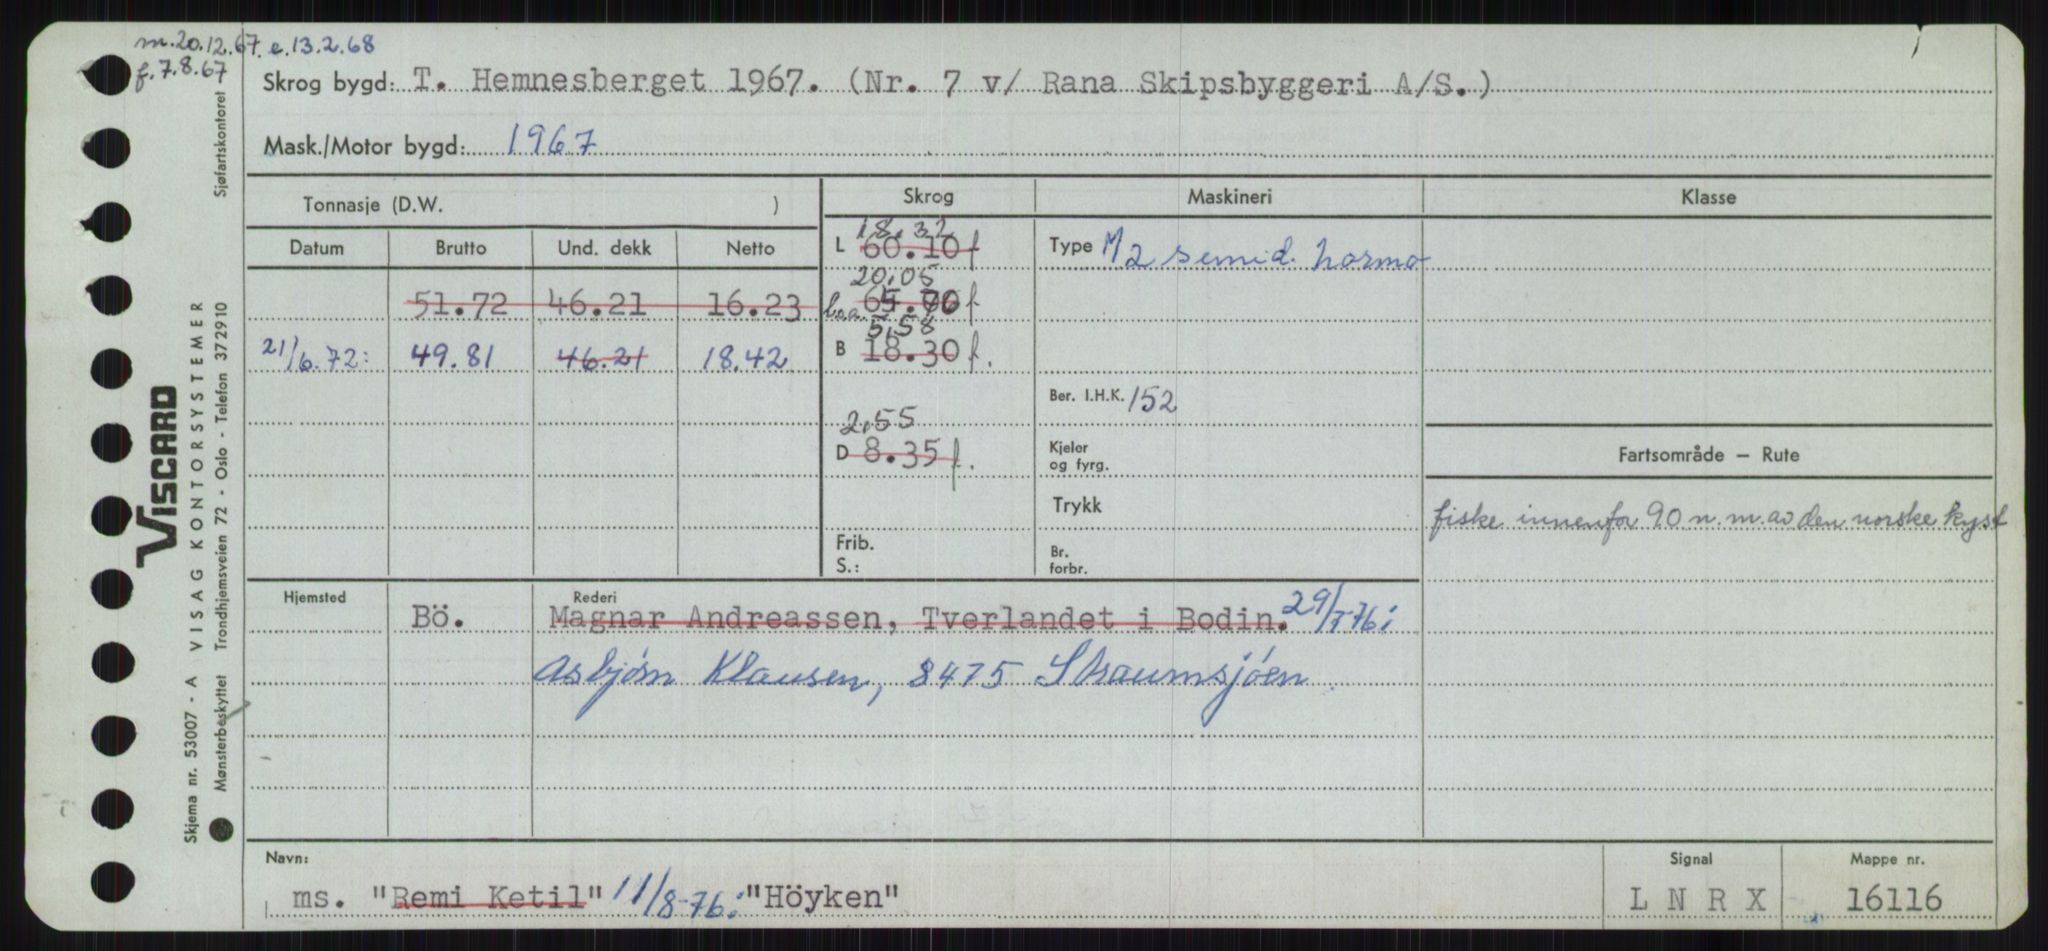 m.20.12.67. e.13.2.68
f.7.8.67
Skrog bygd: T. Hemnesberget 1967. (Nr. 7 v/ Rana Skipsbyggeri A/S.)
Mask./Motor bygd: 1967
Tonnasje (D.W. )
Skrog
Maskineri
Klasse
Datum Brutto Und. dekk Netto
18.32
L 60.10 f
Type M 2 semid. Normo
20,05
51.72 46.21 16.23
loa f
5,58
B 18.30 f.
21/6.72: 49.81 46.21 18.42
Ber. I.H.K. 152
2,55
D 8.35 f.
Kjeler
og fyrg.
Fartsområde – Rute
Trykk
fiske innenfor 90 n.m. av den norske kyst
Frib.
S.:
Br.
forbr.
Hjemsted
Rederi
Bö. Magnar Andreassen, Tverlandet i Bodin. 29/7-76:
Asbjörn Klausen, 8475 Straumsjöen
Navn:
ms. "Remi Ketil" 11/8-76: "Höyken"
Signal
L N R X
Mappe nr.
16116
Sjøfartskontoret
VISCARD
Skjema nr. 53007 - A VISAG KONTORSYSTEMER
Mønsterbeskyttet Trondhjemsveien 72 - Oslo - Telefon 372910